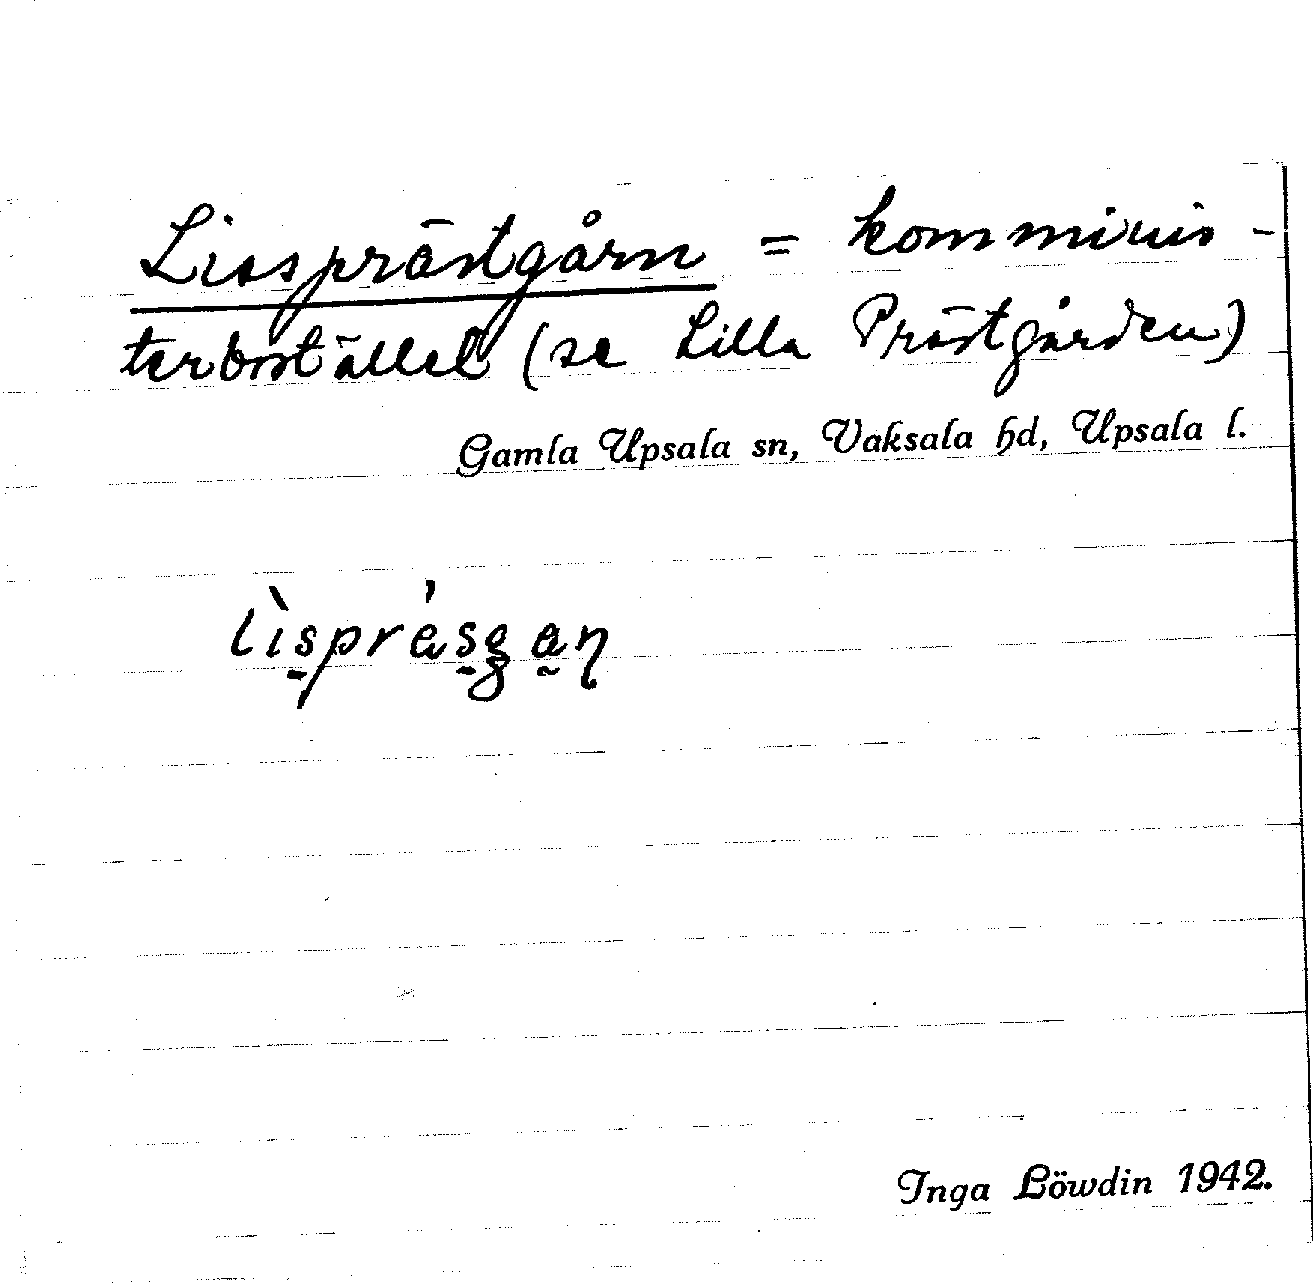 Lissprästgårn = kommunis-
terbostället (se Lilla Prästgården)
Gamla Upsala sn, Vaksala hd, Upsala l.
Inga Löwdin 1942.